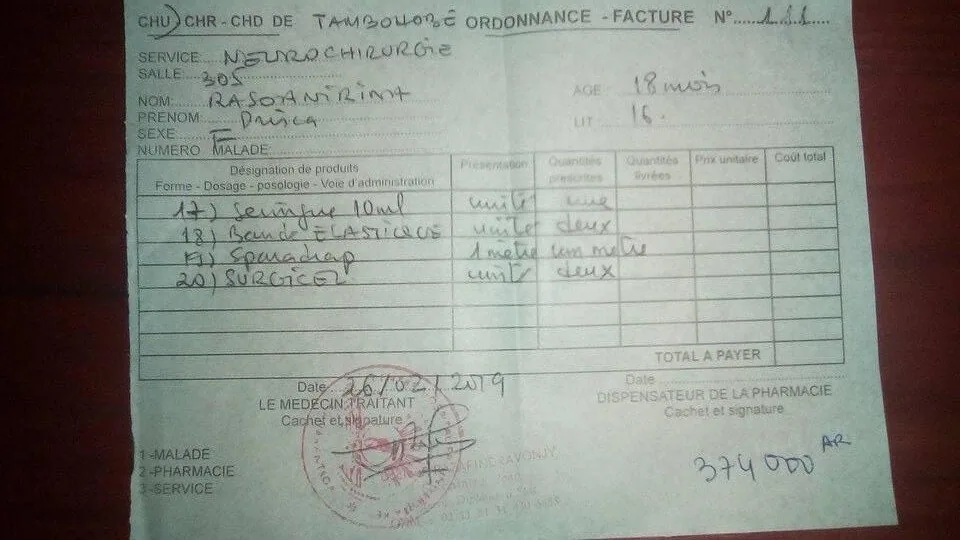 CHU) CHR - CHD DE TAMBOHOBE ORDONNANCE - FACTURE N° 111
SERVICE: NEUROCHIRURGIE
SALLE: 305
NOM: RASOANIRINA AGE: 18 mois
PRENOM: Prisca LIT: 16.
SEXE: F
NUMERO MALADE:
Désignation de produits
Forme - Dosage - posologie - Voie d'administration Présentation Quantités prescrites Quantités livrées Prix unitaire Coût total
17) Seringue 10ml unité une
18) Bande ELASTIQUE unité deux
Sparadrap 1 mètre un mètre
20) SURGICEL unité deux
TOTAL A PAYER
Date 26/02/2019 Date
LE MEDECIN TRAITANT DISPENSATEUR DE LA PHARMACIE
Cachet et signature Cachet et signature
1 -MALADE
2 -PHARMACIE
3 -SERVICE
374 000 AR